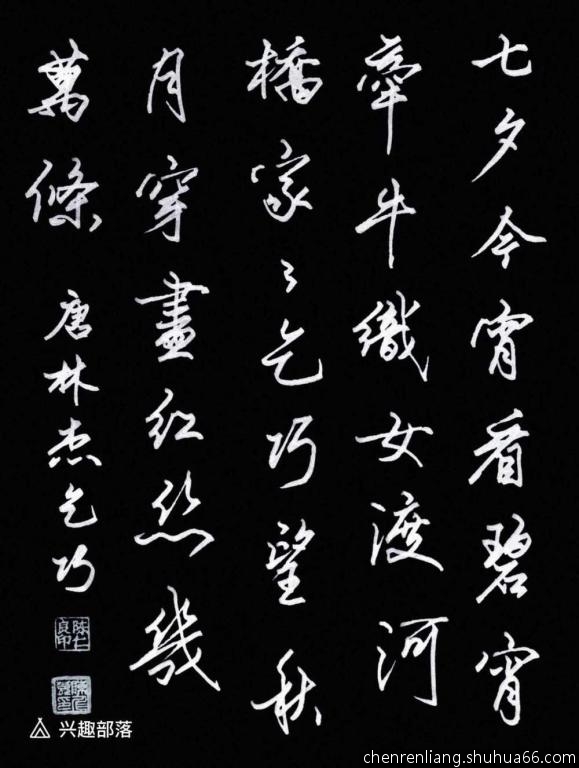 七夕今宵看碧宵
牽牛織女渡河
橋家々乞巧望秋
月穿盡紅丝幾
萬條 唐林杰乞巧
陈仁良印
兴趣部落
chenrenliang.shuhua66.com